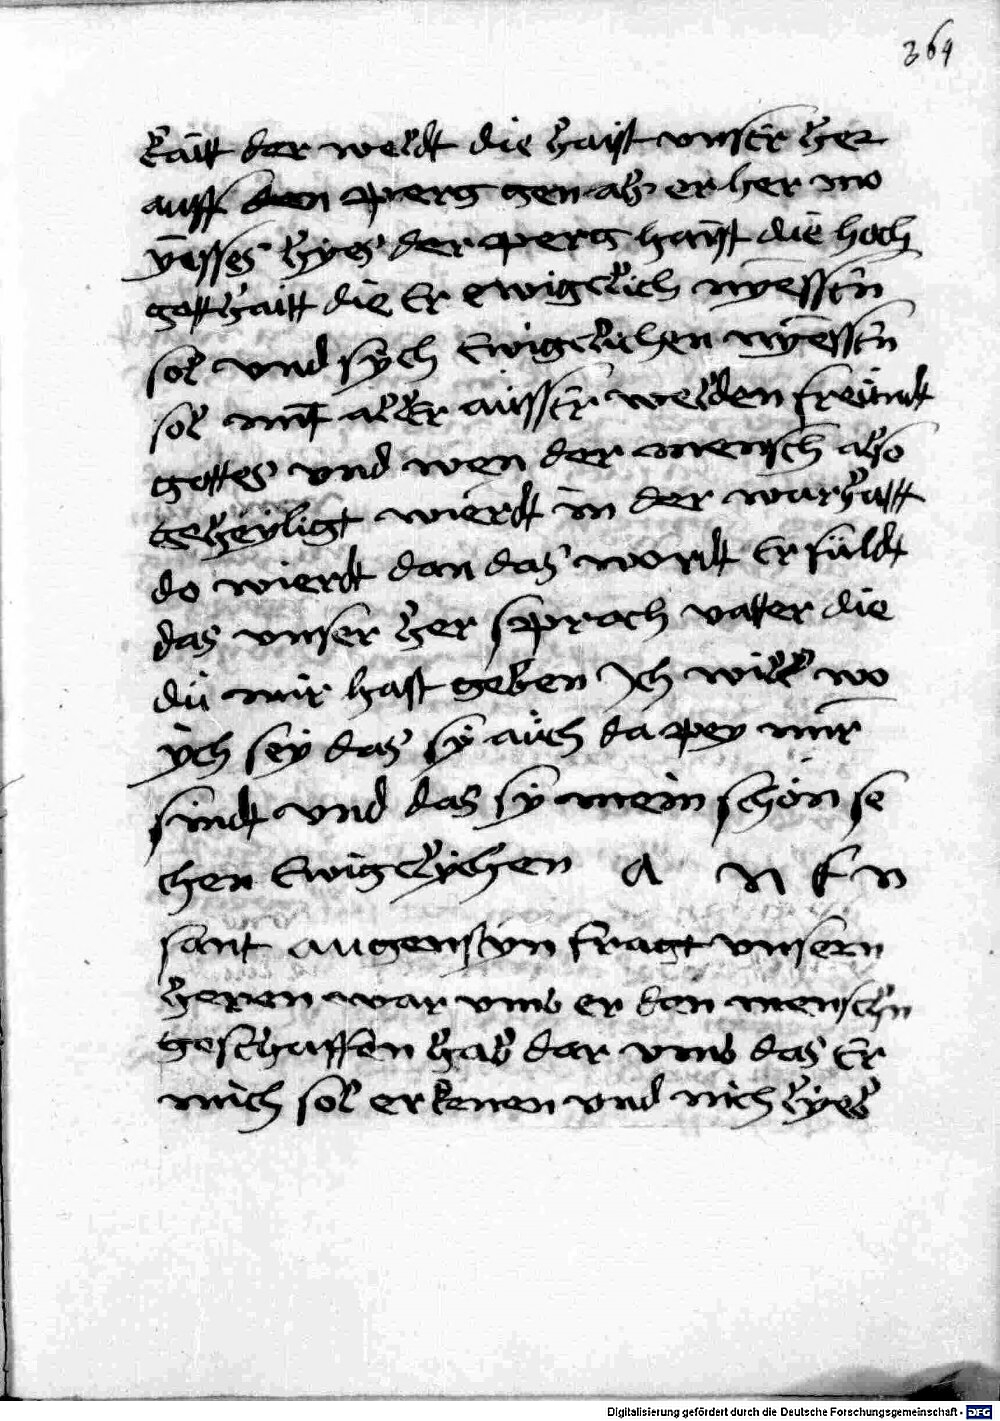 369
kaitt der weldt die haist unser her
auff den perg gen als er her mo
yeses hies der perg haist die hoch
gotthaitt die Er ewigclich nyessen
sol und sych Ewigclichen nyessen
sol mit aller ausser welden freundt
gottes und wen der mensch also
geheyligt wierdt in der warhaitt
do wierdt dan das wordt Erfüldt
das unser her sprach vatter die
dü mir hast geben Ich will wo
ych sey das sy auch da pey mir
sindt und das sy mein schön se
hen Ewigclychen A m E n
sant augenstyn fragt unsern
heren war umb er den menschn
geschaffen hab dar umb das Er
mich sol erkenen und mich lyeb
Digitalisierung gefördert durch die Deutsche Forschungsgemeinschaft - DFG